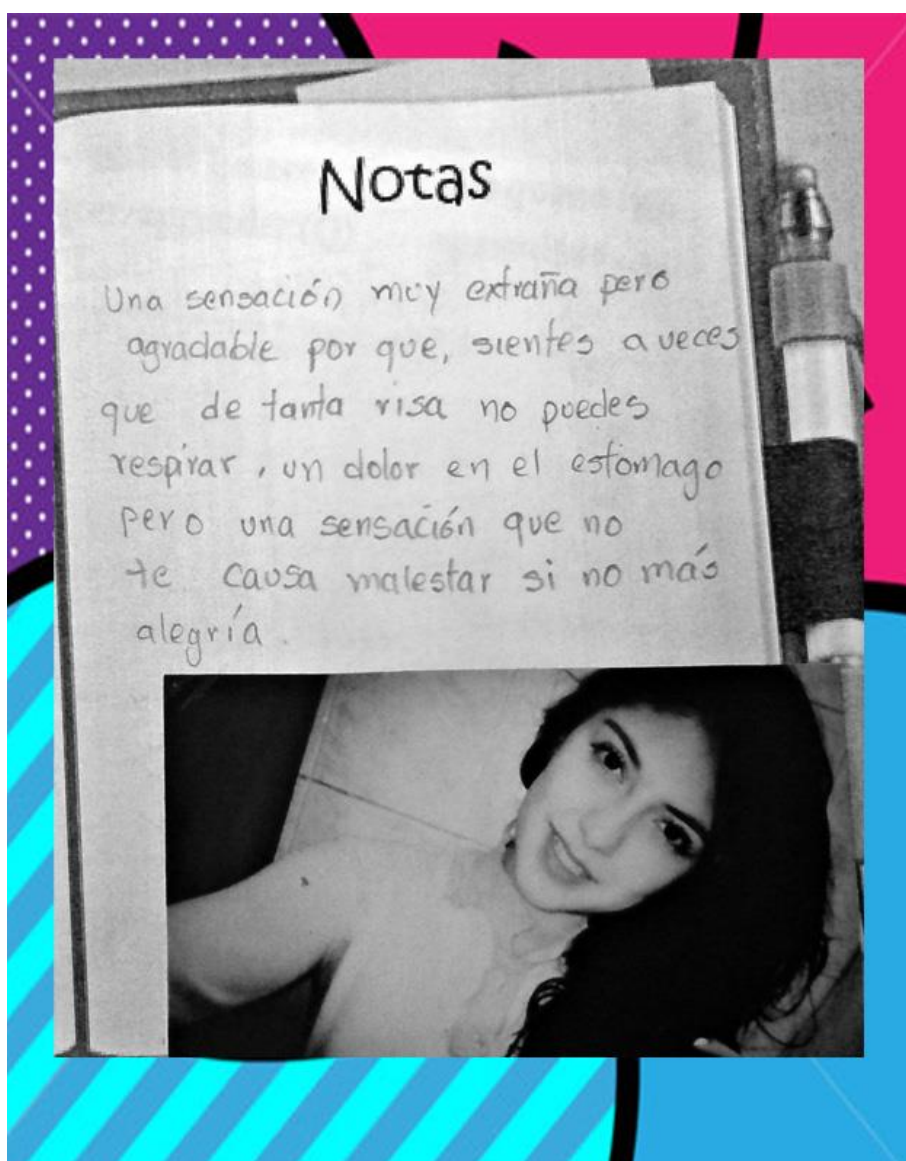 Notas
Una sensación muy extraña pero
agradable por que, sientes a veces
que de tanta risa no puedes
respirar, un dolor en el estomago
pero una sensación que no
te causa malestar si no más
alegría.